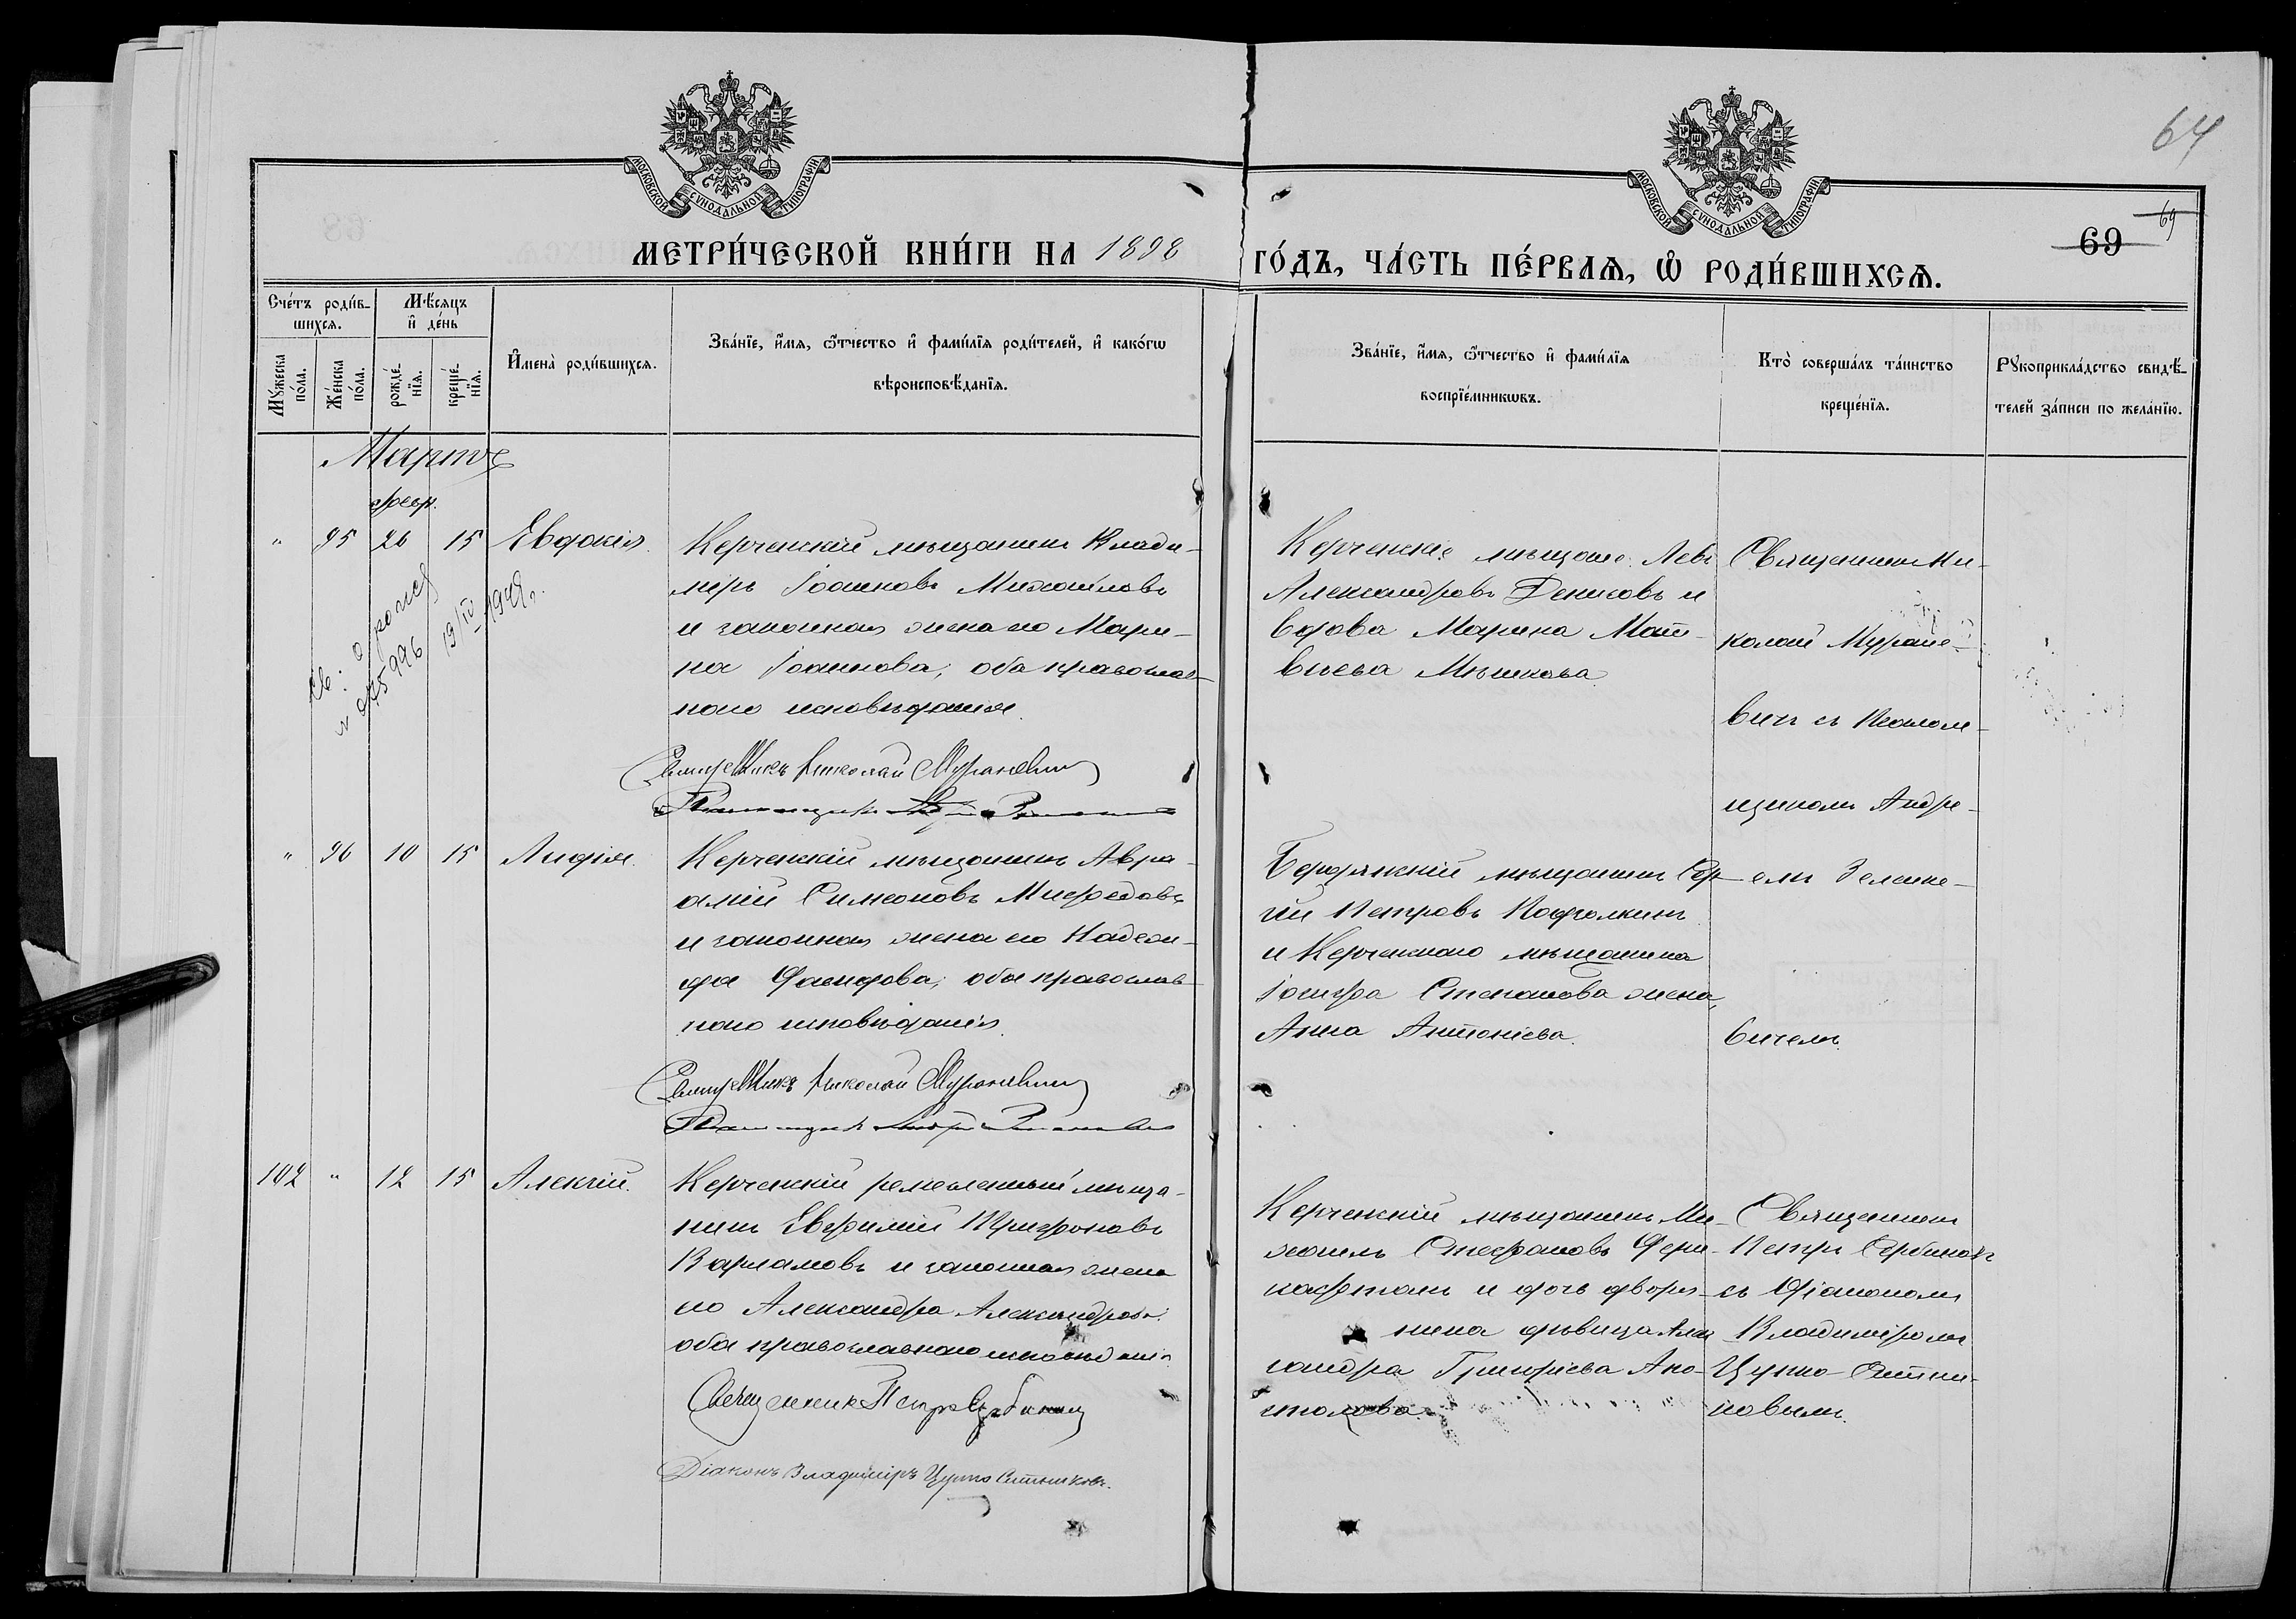 64
МОСКОВСКОЙ СУНОДАЛЬНОЙ ТИПОГРАФІИ
МОСКОВСКОЙ СУНОДАЛЬНОЙ ТИПОГРАФІИ
69
69
МЕТРИ́ЧЕСКОЙ КНИ́ГИ НА 1898 ГО́ДЪ, ЧА́СТЬ ПЕ́РВАѦ, Ѡ҆ РОДИ́ВШИХСѦ.
Сче́тъ роди́в-
шихсѧ.
Мѣ́сѧцъ
и҆ де́нь
Мꙋ́жеска
по́ла.
Же́нска
по́ла.
рожде́-
нїѧ.
креще́-
нїѧ.
И҆мена̀ роди́вшихсѧ.
Зва́нїе, и҆́мѧ, ѻ҆́тчество и҆ фами́лїѧ роди́телей, и҆ како́гѡ
вѣроисповѣ́данїѧ.
Зва́нїе, и҆́мѧ, ѻ҆́тчество и҆ фами́лїѧ
воспрїе́мникѡвъ.
Кто̀ соверша́лъ та́инство
креще́нїѧ.
Рꙋкоприкла́дство свидѣ́-
телей за́писи по жела́нїю.
Мартъ
февр.
" 95 26 15 Евдокія.
Керченскій мѣщанинъ Влади-
міръ Іоанновъ Михайловъ
и законная жена его Мари-
на Іоаннова, оба православ-
наго исповѣданія.
Священникъ Николай Мураневичъ
Керченскіе мѣщане: Левъ
Александровъ Денисовъ и
вдова Марина Мат-
вѣева Мѣшкова
Священникъ Ни-
колай Муране-
вичъ съ Псалом-
щикомъ Андре-
емъ Зелине-
вичемъ.
св: о рожд
19/IV-1949г.
" 96 10 15 Лидія.
Керченскій мѣщанинъ Авра-
амій Симеоновъ
и законная жена его Надеж-
да Давидова, оба православ-
наго исповѣданія.
Священникъ Николай Мураневичъ
Бердянскій мѣщанинъ Сер-
гій Петровъ
и Керченскаго мѣщанина
Степанова жена,
Анна Антоніева.
102 " 12 15 Алексій.
Керченскій ремесленный мѣща-
нинъ Евфимій Трифоновъ
Варламовъ и законная жена
его Александра Александрова.
оба православнаго исповѣданія
Священникъ Петръ Сербиновъ
Діаконъ Владиміръ Цупко Ситниковъ.
Керченскій мѣщанинъ Ми-
хаилъ Стефановъ
и дочь дворя-
нина дѣвица Алек
сандра Григоріева Апо-
столова.
Священникъ
Петръ Сербиновъ
съ Діакономъ
Владиміромъ
Цупко-Ситни-
ковымъ.